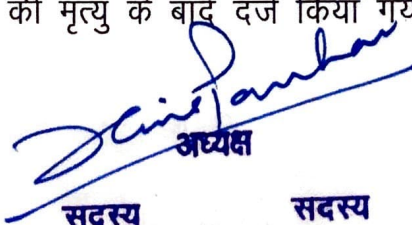 की मृत्यु के बाद दर्ज किया गय
अध्यक्ष
सदस्य सदस्य